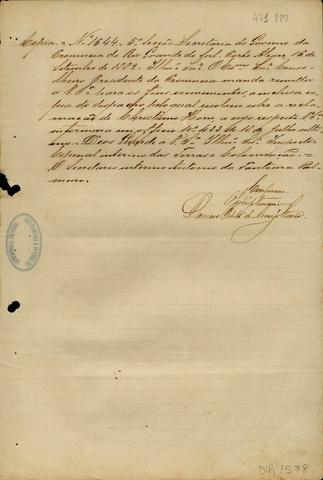 471 889
Copia - Nº 1644 - 5ª Secção. Secretaria do Governo da
Provincia do Rio Grande do Sul. Porto Alegre 16 de
Setembro de 1882. Illmo Snr. O Exmo Snr. Conse-
lheiro Presidente da Provincia manda remetter
a V. Sª para os fins convenientes, a inclusa co-
pia do despacho pelo qual resolveu sobre a recla-
mação de Christiano Horn a cujo respeito V. Sª
informara em officio Nº 433 de 15 de Julho ulti-
mo. - Deus Guarde a V. Sª. Illmo Snr. Inspector
Especial interino das Terras e Colonisação. -
O Secretario interino
Conforme
D/R/578